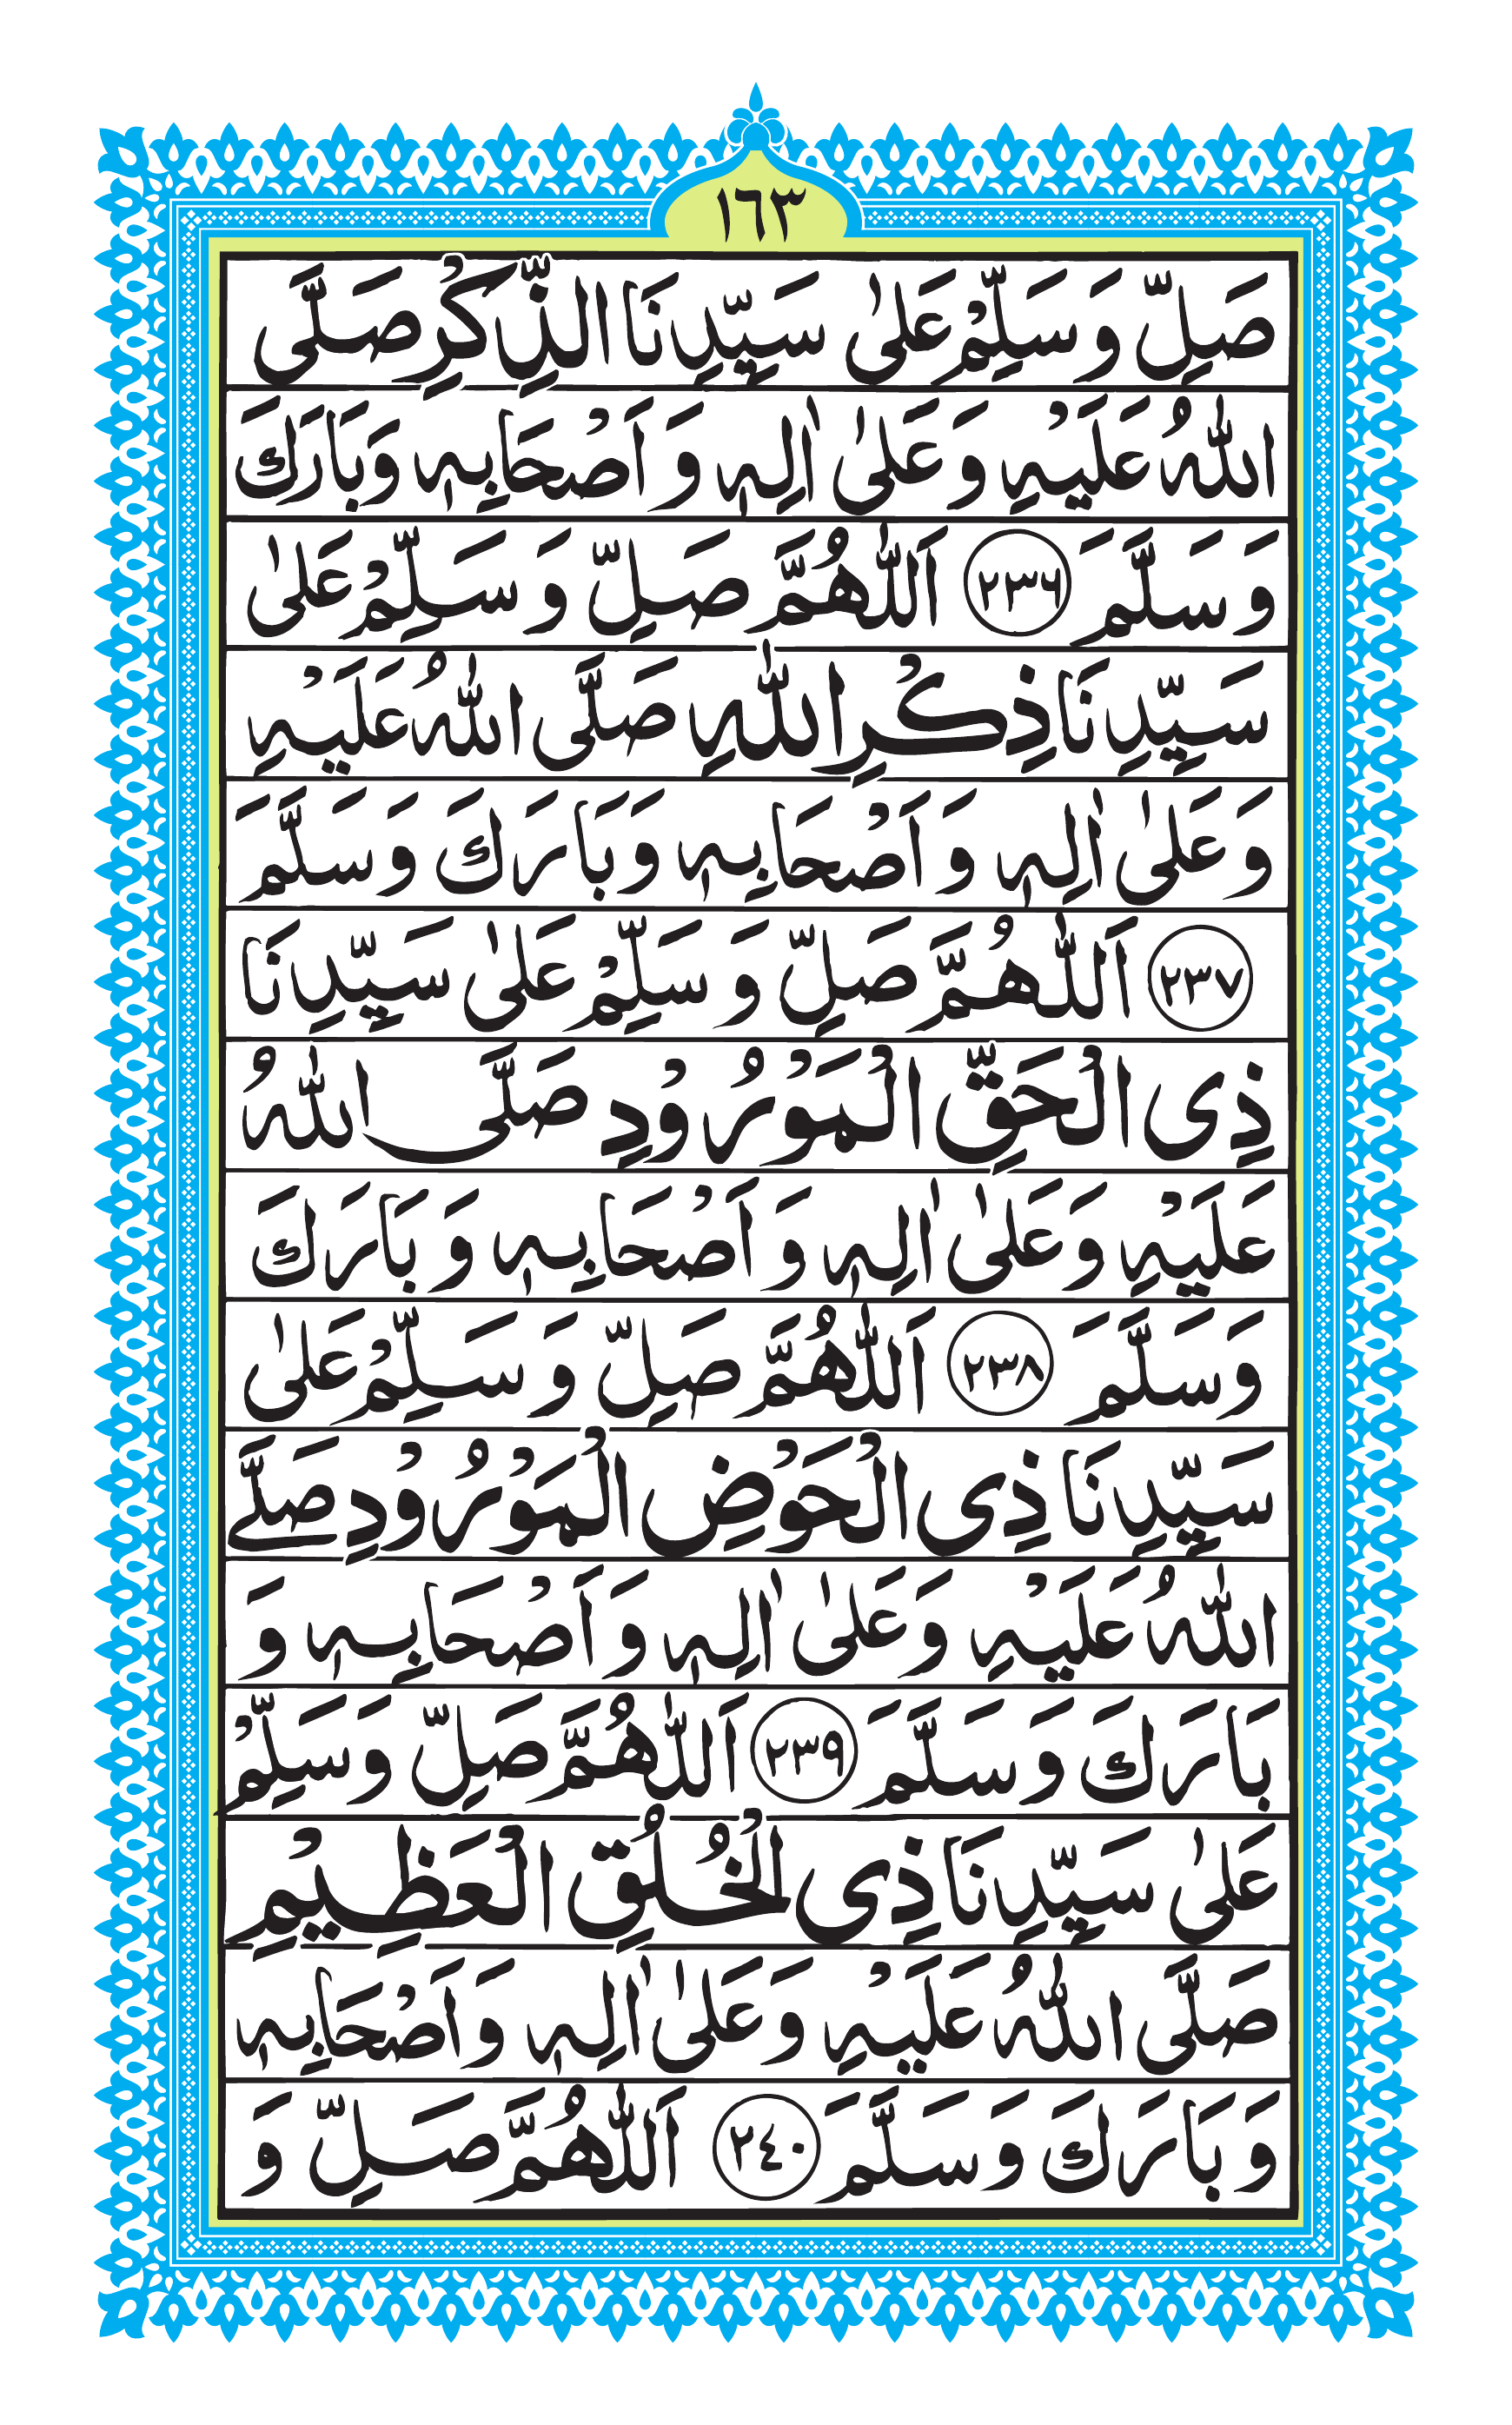 ١٦٣
صَلِّ وَ سَلِّمْ عَلٰى سَيِّدِنَا الذِّكْرِ صَلَّى
اللّٰهُ عَلَيْهِ وَ عَلٰى اٰلِهٖ وَ اَصْحَابِهٖ وَبَارَكَ
وَ سَلَّمَ ۲۳۶ اَللّٰهُمَّ صَلِّ وَ سَلِّمْ عَلٰى
سَيِّدِنَا ذِكْرِ اللّٰهِ صَلَّى اللّٰهُ عَلَيْهِ
وَعَلٰى اٰلِهٖ وَ اَصْحَابِهٖ وَبَارَكَ وَسَلَّمَ
۲۳۷ اَللّٰهُمَّ صَلِّ وَ سَلِّمْ عَلٰى سَيِّدِنَا
ذِى الْحَقِّ الْمَوْرُوْدِ صَلَّى اللّٰهُ
عَلَيْهِ وَعَلٰى اٰلِهٖ وَ اَصْحَابِهٖ وَ بَارَكَ
وَسَلَّمَ ۲۳۸ اَللّٰهُمَّ صَلِّ وَ سَلِّمْ عَلٰى
سَيِّدِنَا ذِى الْحَوْضِ الْمَوْرُوْدِ صَلَّے
اللّٰهُ عَلَيْهِ وَعَلٰى اٰلِهٖ وَاَصْحَابِهٖ وَ
بَارَكَ وَسَلَّمَ ۲۳۹ اَللّٰهُمَّ صَلِّ وَسَلِّمْ
عَلٰى سَيِّدِنَا ذِى الْخُلُقِ الْعَظِيْمِ
صَلَّى اللّٰهُ عَلَيْهِ وَعَلٰى اٰلِهٖ وَاَصْحَابِهٖ
وَبَارَكَ وَسَلَّمَ ٢٤٠ اَللّٰهُمَّ صَلِّ وَ